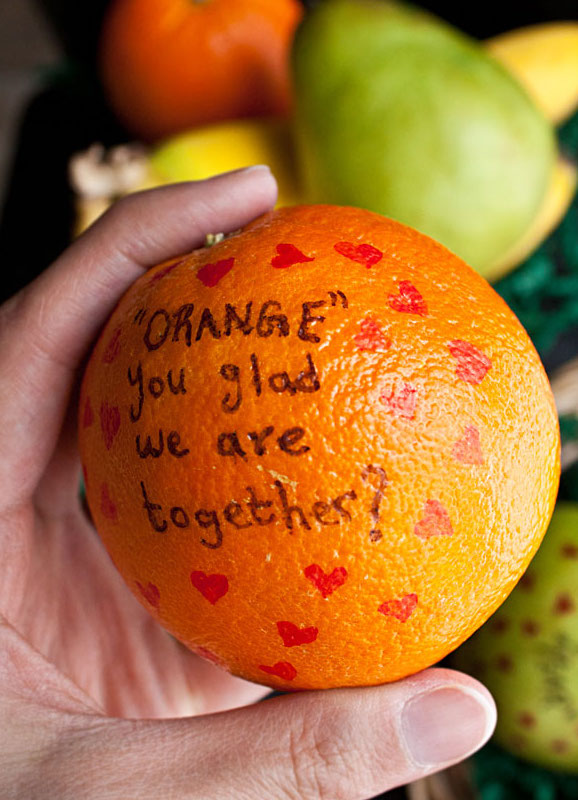 "ORANGE"
you glad
we are
together?